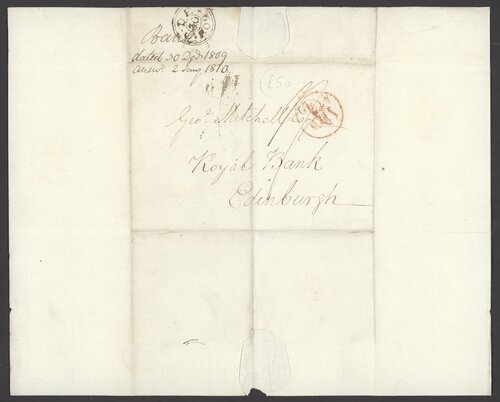 dated 30 Decr. 1809
answd. 2 Jany 1810.
£50
Geo. Mitchell Esqr
Royal Bank
Edinburgh